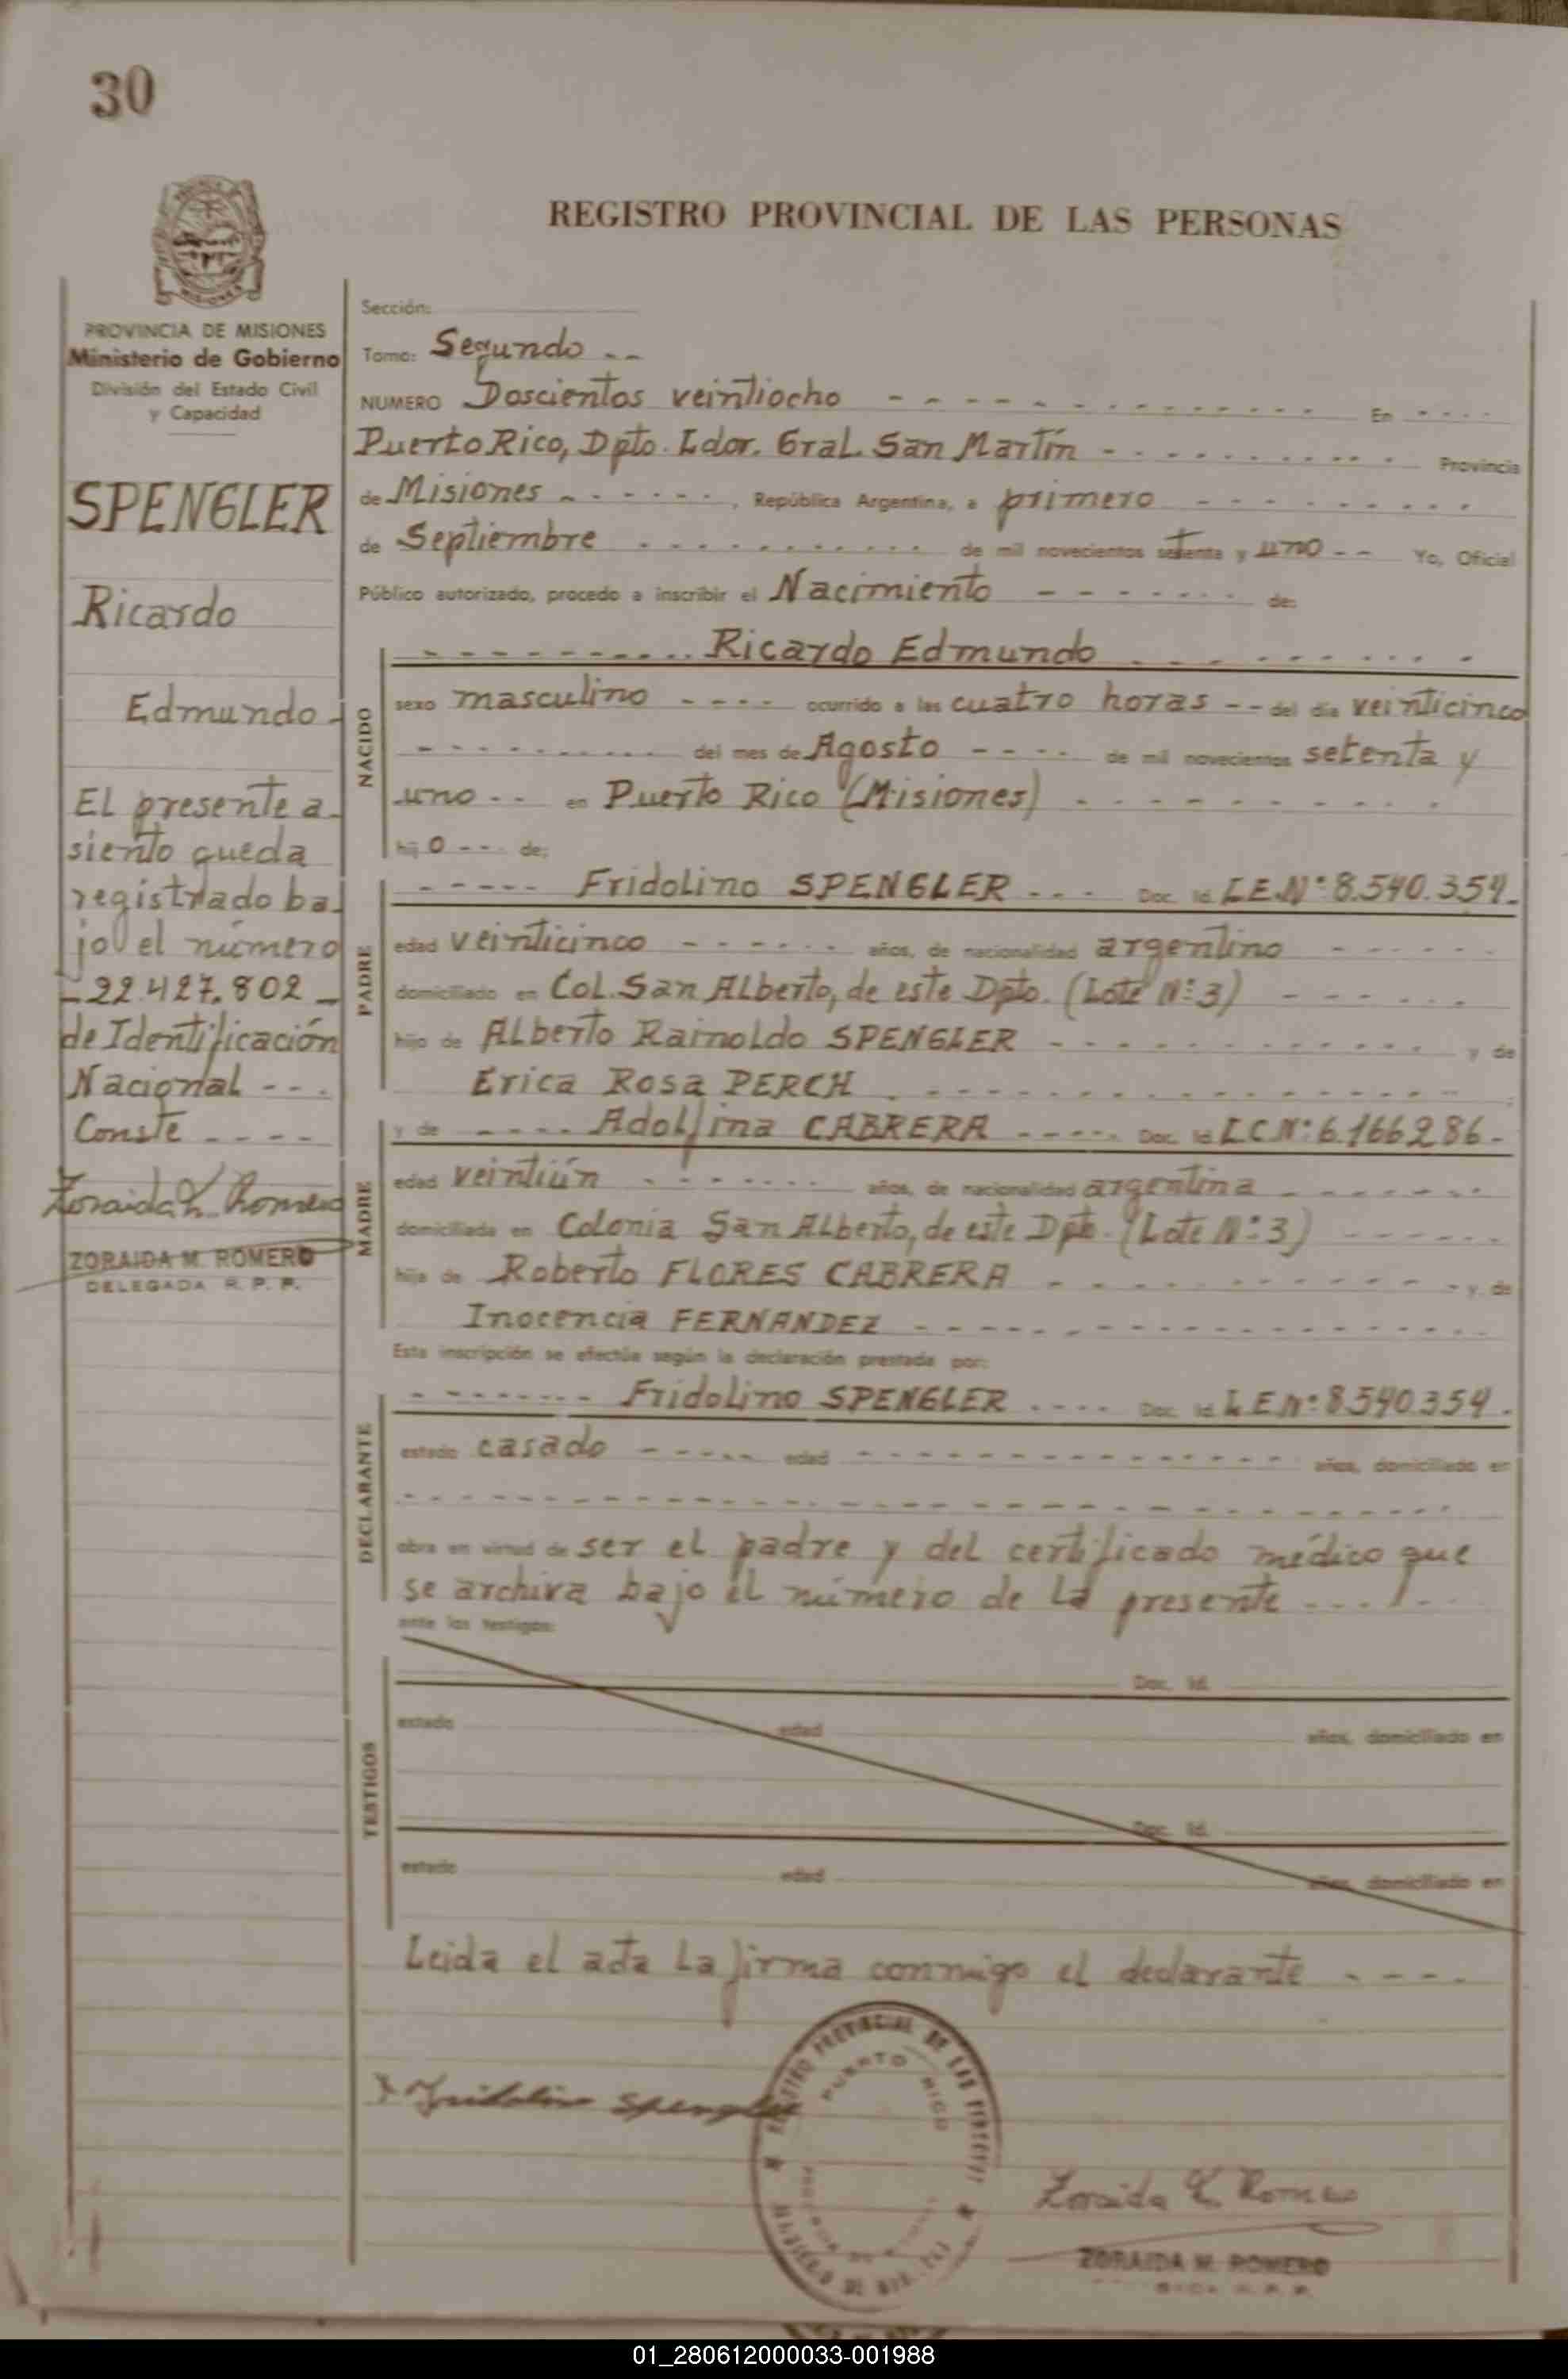 30
REGISTRO PROVINCIAL DE LAS PERSONAS
MISIONES
PROVINCIA DE MISIONES
Ministerio de Gobierno
División del Estado Civil
y Capacidad
SPENGLER
Ricardo
Edmundo -
El presente a-
siento queda
registrado ba-
jo el número
- 22.427.802 -
de Identificación
Nacional - - -
Conste - - - -
Zoraida M. Romero
ZORAIDA M. ROMERO
DELEGADA R. P. P.
Sección:
Tomo: Segundo - -
NUMERO Doscientos veintiocho - - - - En - - - -
Puerto Rico, Dpto. Ldor. Gral. San Martín - - - - Provincia
de Misiones - - - - , República Argentina, a primero - - - -
de Septiembre - - - - de mil novecientos setenta y uno - - Yo, Oficial
Público autorizado, procedo a inscribir el Nacimiento - - - - de:
NACIDO
- - - - Ricardo Edmundo - - - -
sexo masculino - - - - ocurrido a las cuatro horas - - del día veinticinco
- - - - del mes de Agosto - - - - de mil novecientos setenta y
uno - - en Puerto Rico (Misiones) - - - -
hij o - - - de:
PADRE
- - - - Fridolino SPENGLER - - - Doc. Id. L.E.Nº 8.540.354.-
edad veinticinco - - - - años, de nacionalidad argentino - - - -
domiciliado en Col. San Alberto, de este Dpto. (Lote Nº 3) - - - -
hijo de Alberto Rainoldo SPENGLER - - - - y de
Erica Rosa PERCH - - - -
MADRE
y de - - - - Adolfina CABRERA - - - - Doc. Id. L C Nº 6.166286.-
edad veintiún - - - - años, de nacionalidad argentina - - - -
domiciliada en Colonia San Alberto, de este Dpto. (Lote Nº 3) - - - -
hija de Roberto FLORES CABRERA - - - - y de
Inocencia FERNANDEZ - - - -
Esta inscripción se efectúa según la declaración prestada por:
DECLARANTE
- - - - Fridolino SPENGLER - - - - Doc. Id. L E Nº 8.540.354.
estado casado - - - - edad - - - - años, domiciliado en
- - - -
obra en virtud de ser el padre y del certificado médico que
se archiva bajo el número de la presente - - - -
ante los testigos:
TESTIGOS
Doc. Id.
estado edad años, domiciliado en
Doc. Id.
estado edad años, domiciliado en
Leida el acta la firma conmigo el declarante - - - -
Fridolino Spengler
REGISTRO PROVINCIAL DE LAS PERSONAS
PUERTO RICO
Zoraida M. Romero
ZORAIDA M. ROMERO
01_280612000033-001988